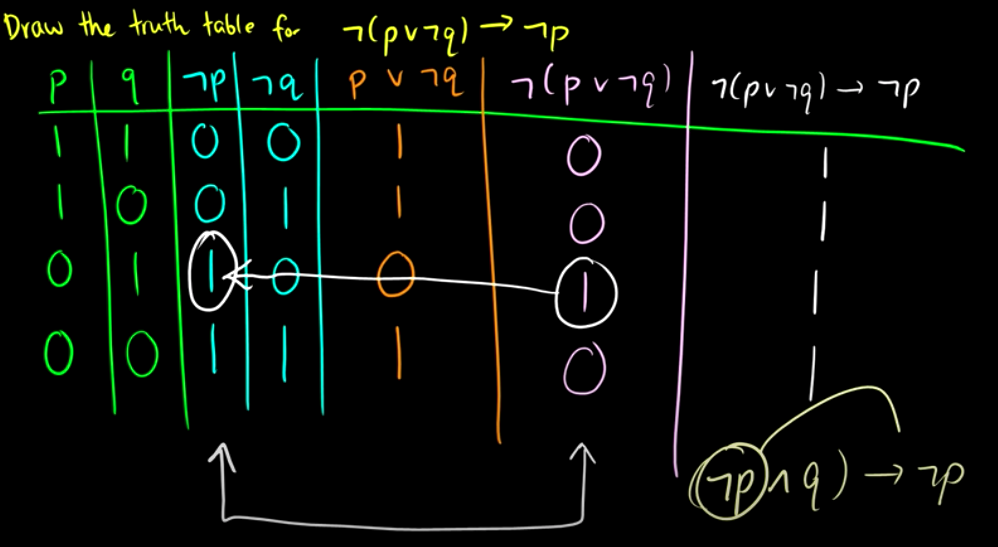 Draw the truth table for ¬(p∨¬q) → ¬p
p q ¬p ¬q p ∨ ¬q ¬(p ∨ ¬q) ¬(p∨¬q) → ¬p
1 1 0 0 1 0 1
1 0 0 1 1 0 1
0 1 1 0 0 1 1
0 0 1 1 1 0 1
(¬p∧q) → ¬p